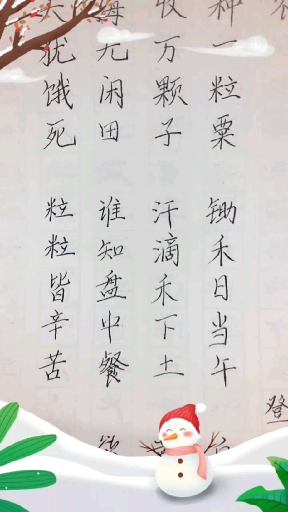 种一粒粟
收万颗子
海无闲田
犹饿死
锄禾日当午
汗滴禾下土
谁知盘中餐
粒粒皆辛苦
登